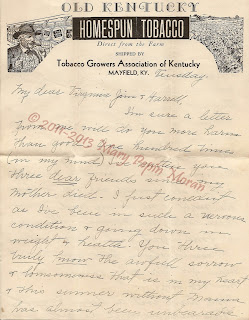 OLD KENTUCKY
HOMESPUN TOBACCO
Direct from the Farm
SHIPPED BY
Tobacco Growers Association of Kentucky
MAYFIELD, KY.
Tuesday
My dear Virginia Jim & Harriet,
I'm sure a letter
from me will do you more harm
than good. One hundred times
(in my mind) I've written you
three dear friends since my
Mother died. I just couldn't
as I've been in such a nervous
condition & going down in
weight & health. You three
truly know the awful sorrow
& lonesomeness that is in my heart
& this summer without Mama
has almost been unbearable